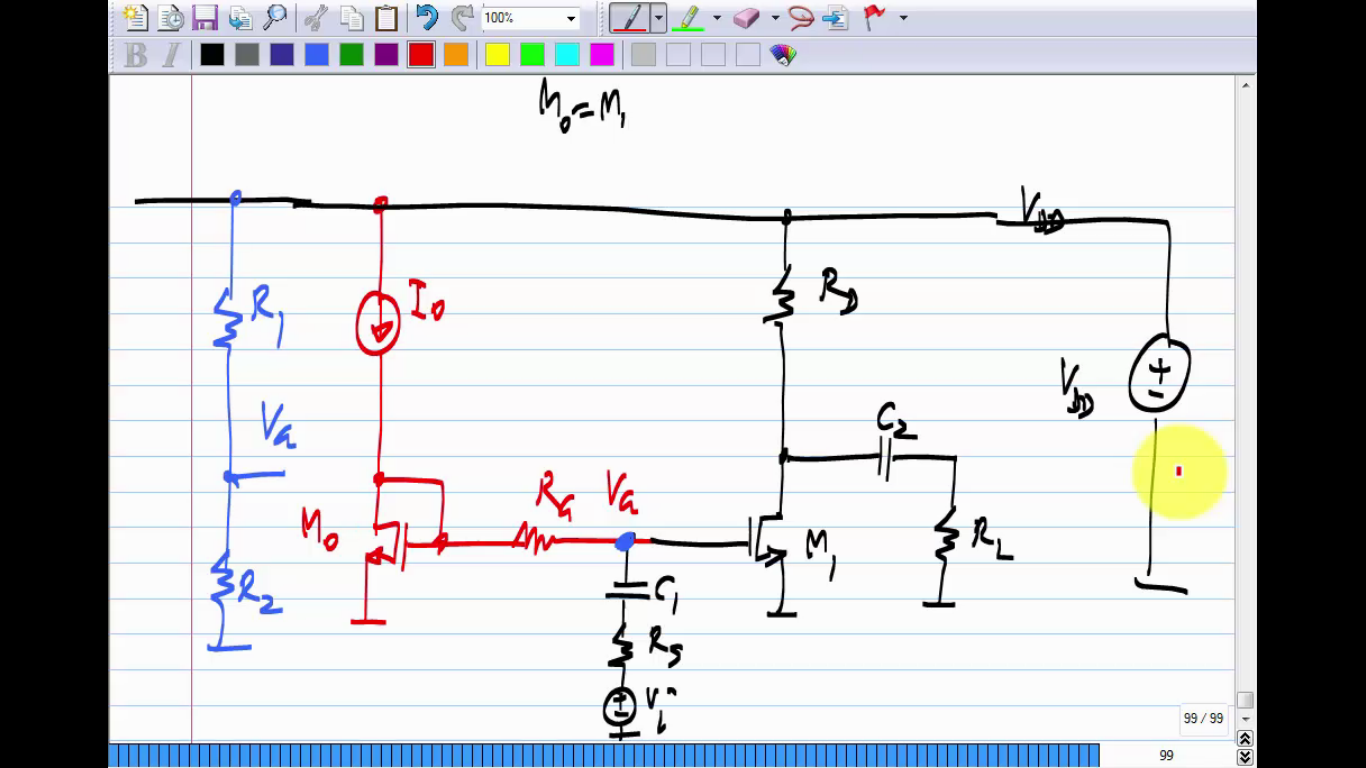 100%
B I
M0 = M1
VDD
R1
I0
RD
VDD
Va
C2
M0
RG
VG
M1
RL
R2
C1
RS
Vi
99 / 99
99